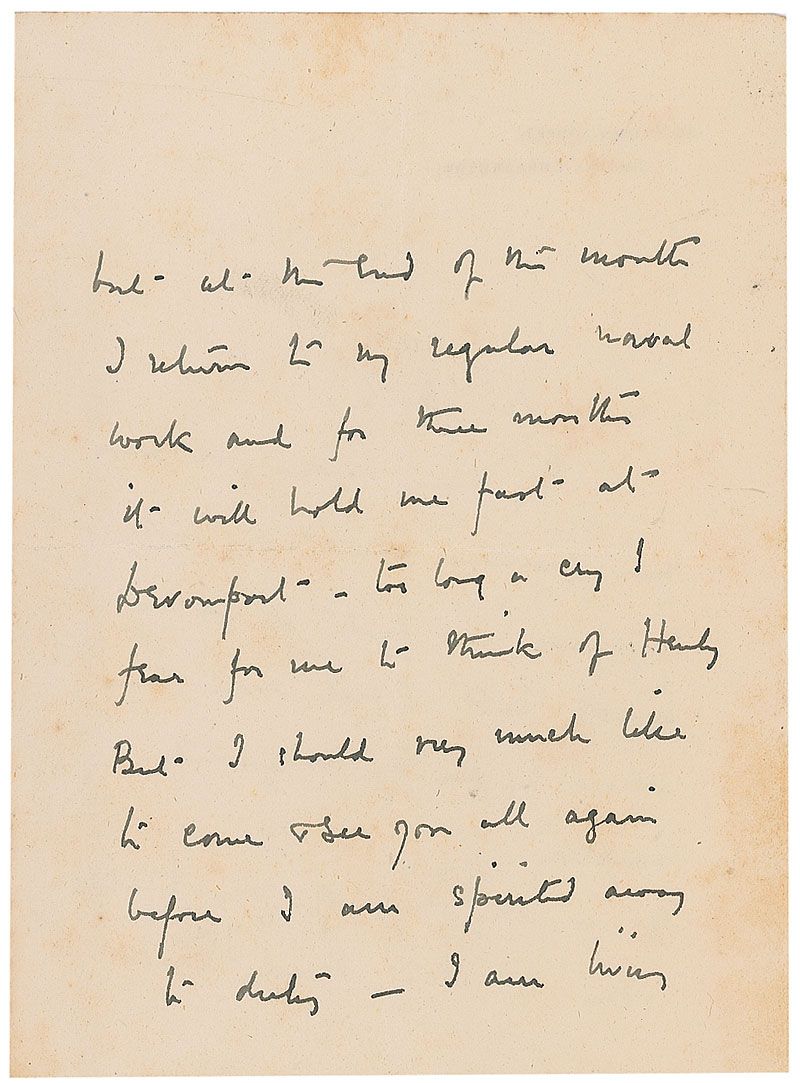 but at the End of this month
I return to my regular naval
work and for three months
it will hold me fast at
Devonport - too long a cry I
fear for me to think of Henley
But I should very much like
to come & see you all again
before I am spirited away
to duty — I am living